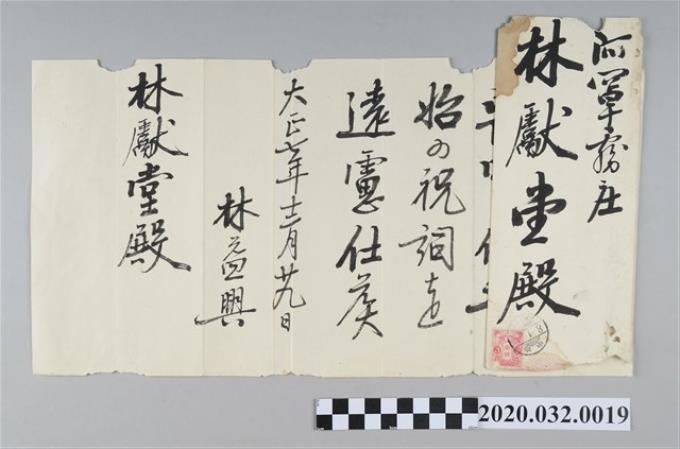 阿罩霧庄
林獻堂殿
始め祝詞を
遠慮仕候
大正七年十二月廿九日
林益興
林獻堂殿
2020.032.0019